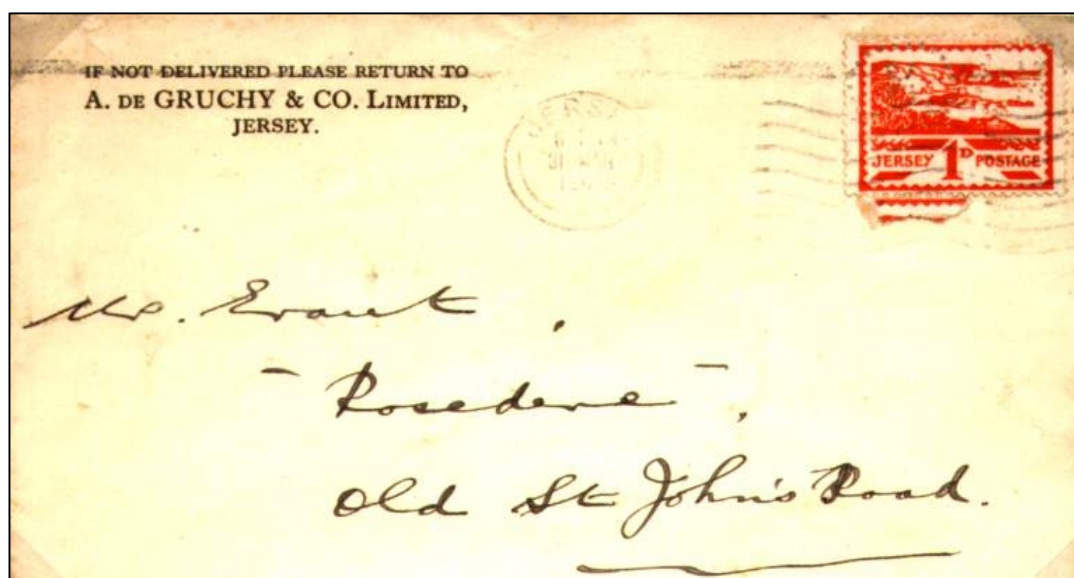 IF NOT DELIVERED PLEASE RETURN TO
A. DE GRUCHY & CO. LIMITED,
JERSEY.
JERSEY
JERSEY 1D POSTAGE
Mr. Erant,
"Rosedene",
Old St John's Road.